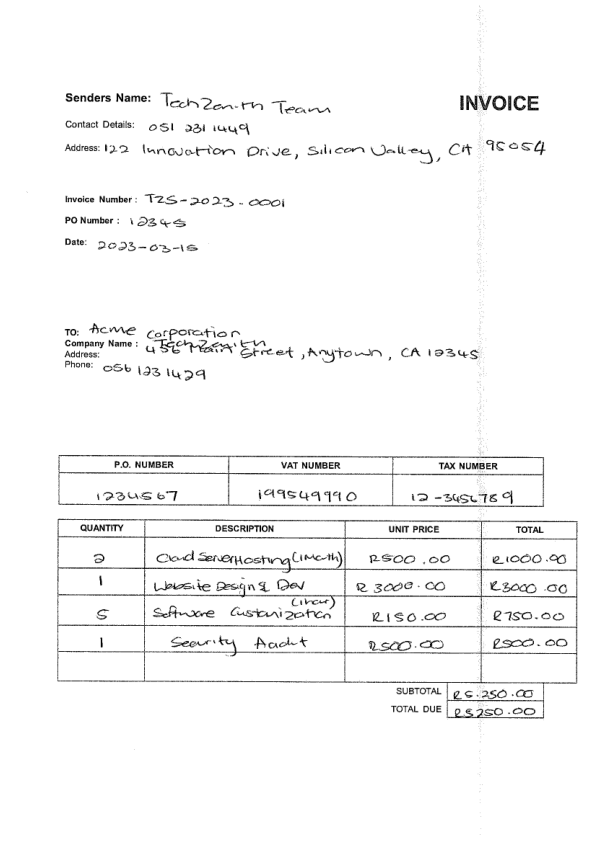 Senders Name: TechZenith Team
INVOICE
Contact Details: 051 231 1449
Address: 122 Innovation Drive, Silicon Valley, CA 95054
Invoice Number: TZS-2023-0001
PO Number: 12345
Date: 2023-03-15
TO: Acme Corporation
Company Name: TechZenith
Address: 456 Main Street, Anytown, CA 12345
Phone: 056 123 1429
P.O. NUMBER VAT NUMBER TAX NUMBER
1234567 199549990 12-3456789
QUANTITY DESCRIPTION UNIT PRICE TOTAL
2 Cloud Server Hosting (1 Month) R500.00 R1000.00
1 Website Design & Dev R3000.00 R3000.00
5 Software Customization (1 hour) R150.00 R750.00
1 Security Audit R500.00 R500.00
SUBTOTAL R5.250.00
TOTAL DUE R5250.00